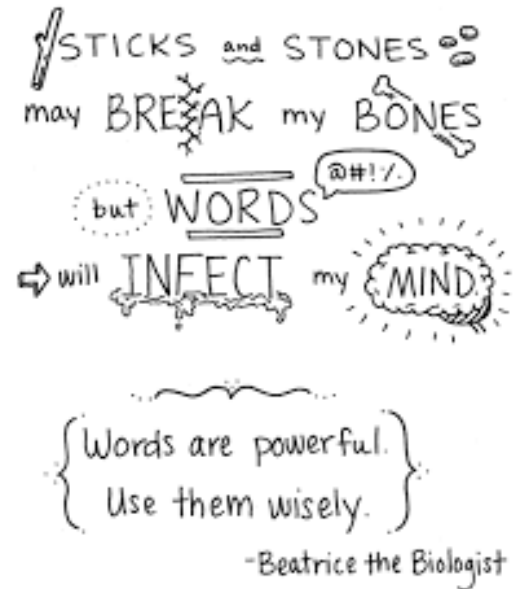 STICKS and STONES
may BREAK my BONES
@#!%.
but WORDS
will INFECT my MIND.
Words are powerful.
Use them wisely.
-Beatrice the Biologist